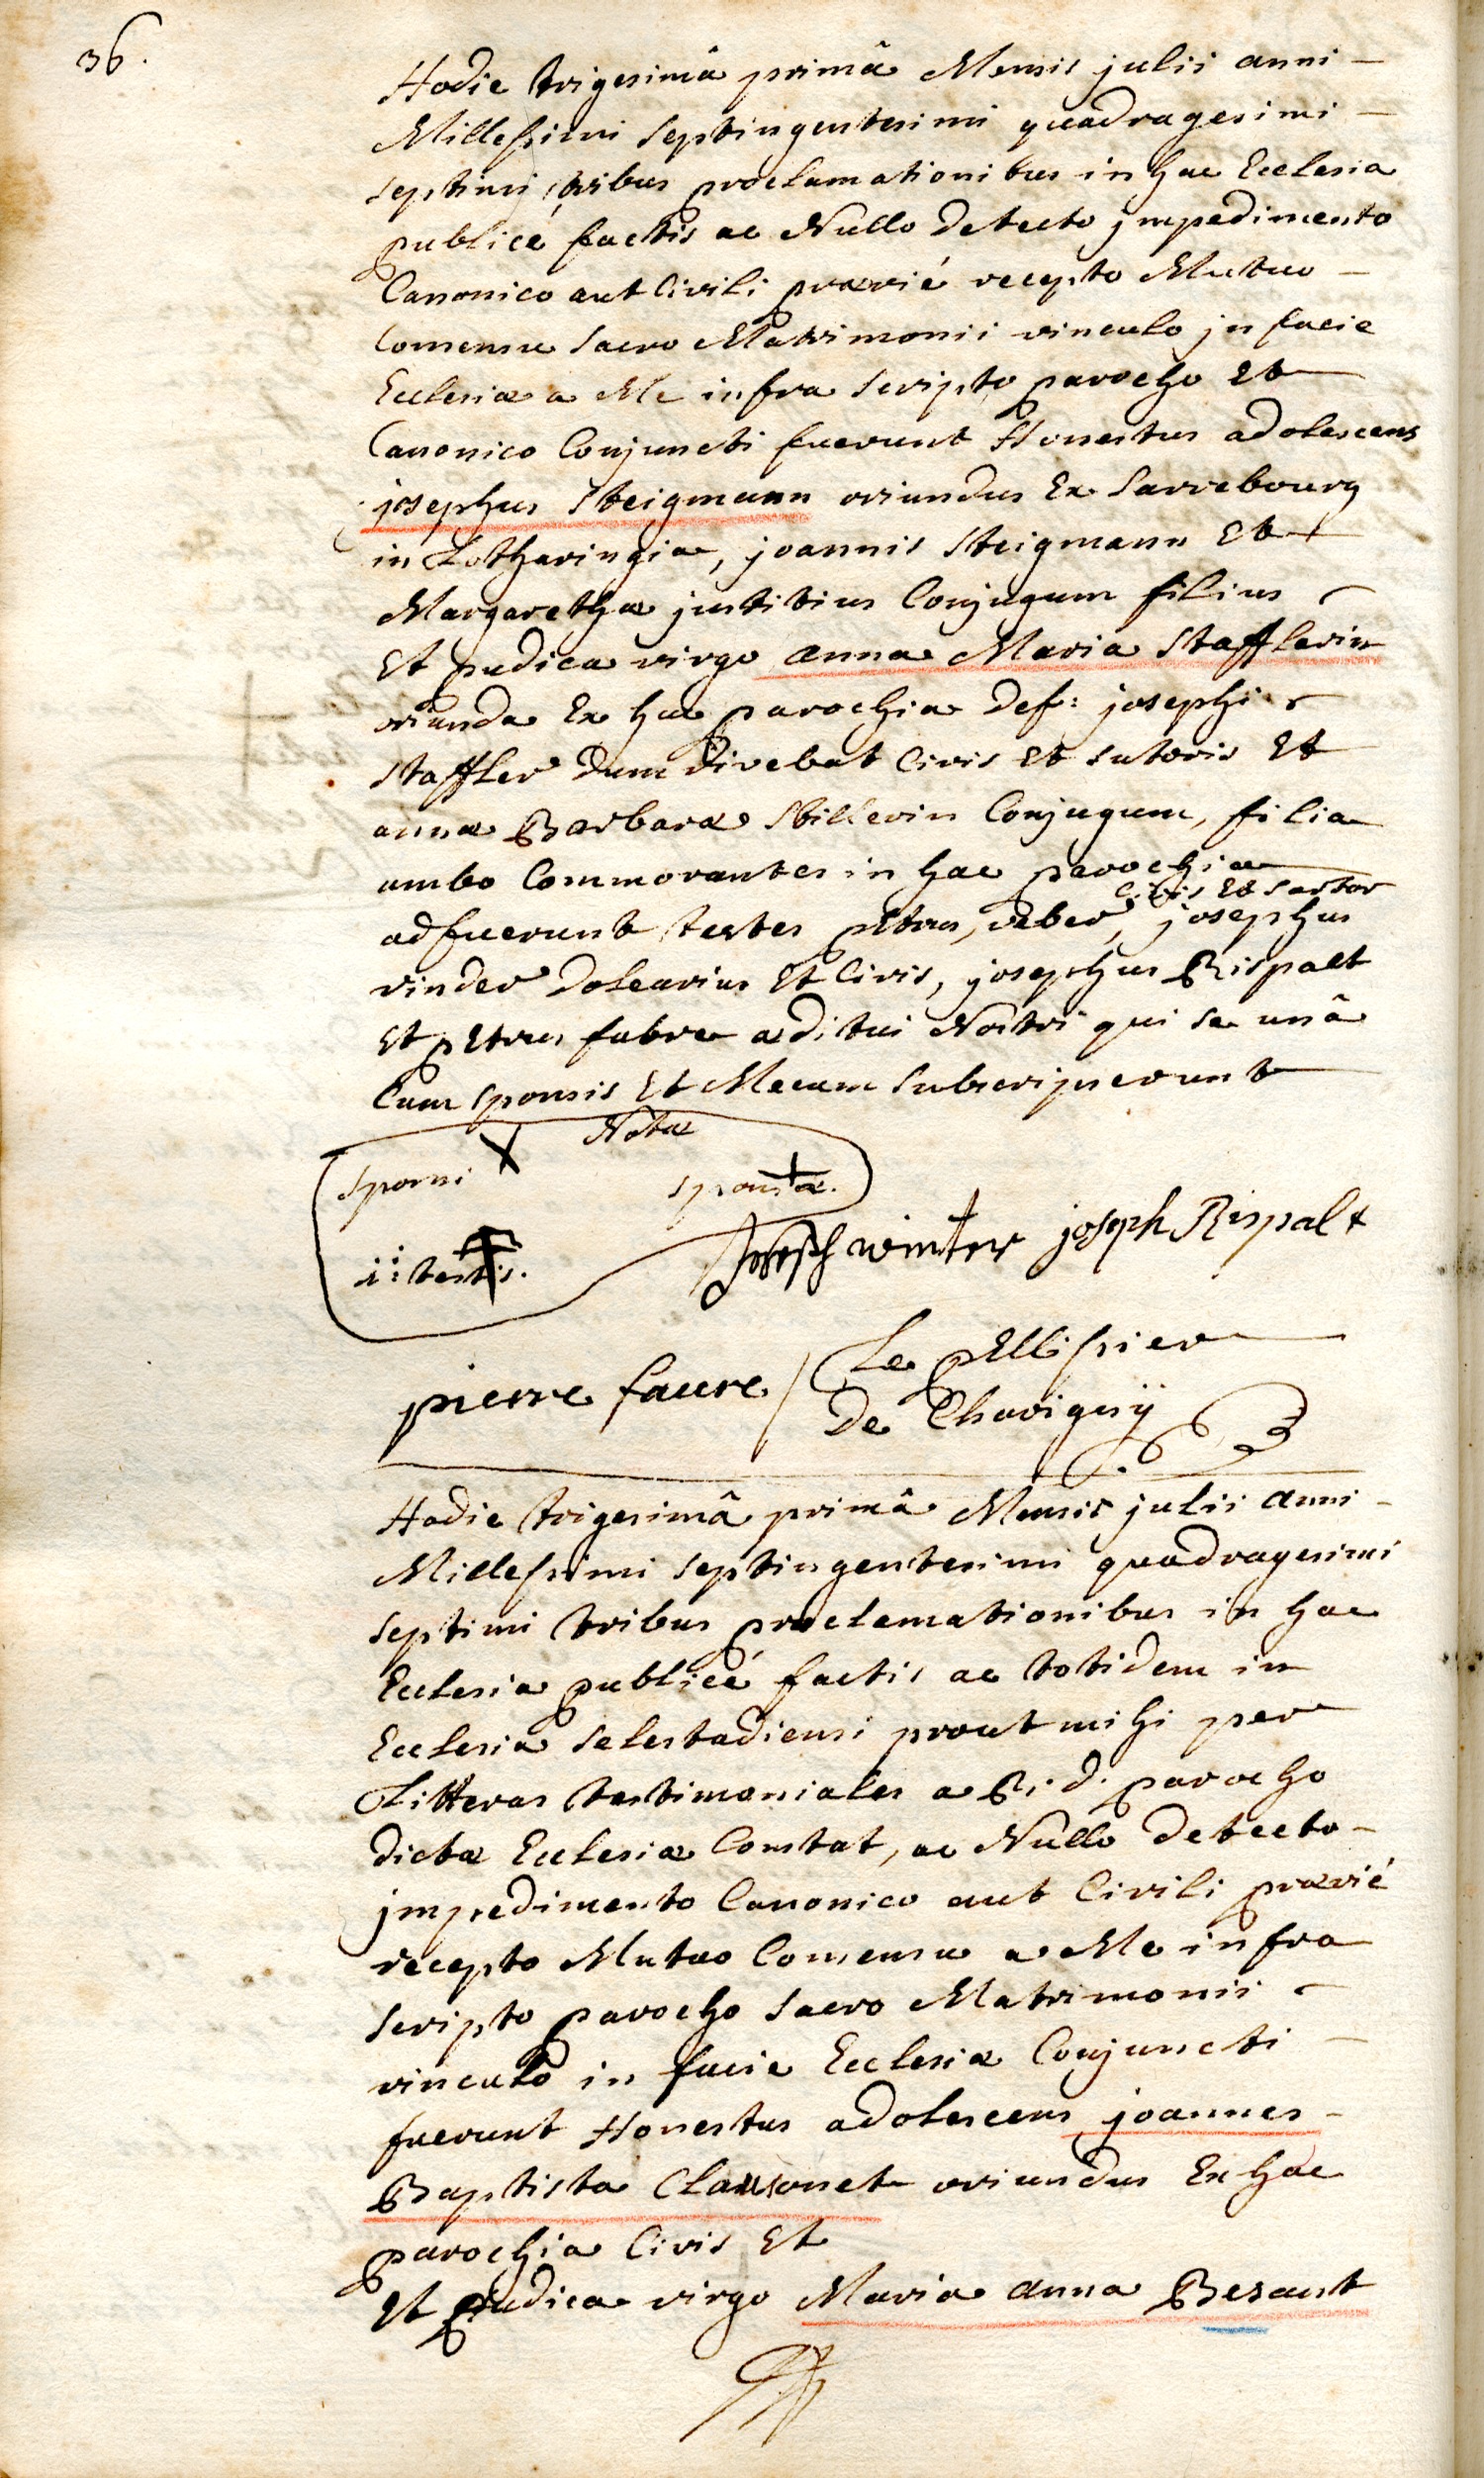 36.
Hodie trigesimâ primâ Mensis julii anni —
Millesimi septingentesimi quadragesimi —
septimi, tribus proclamationibus in hac Ecclesia
publicé factis ac Nullo detecto jmpedimento
Canonico aut Civili prævié recepto Mutuo —
Consensu sacro Matrimonii vinculo jn facie
Ecclesiæ a Me infra scripto parocho Et
Canonico Conjuncti fuerunt Honestus adolescens
josephus Steigmann oriundus Ex Sarrebourg
in Lotharingia, joannis Steigmann Et
Margarethæ justitius Conjugum filius
Et pudica virgo anna Maria Stafflerin
oriunda Ex hac parochia def: josephi
Staffler dum vivebat Civis Et sutoris Et
annæ Barbaræ Conjugum, filia
ambo Commorantes in hac parochia
Civis Et sartor
adfuerunt testes petrus, veber, josephus
vinder dolearius Et Civis, josephus Rispalt
Et petrus fabre æditui Nostri qui se unâ
Cum sponsis Et Mecum subscripserunt
Nota
sponsi sponsæ.
i: testis.
joseph winter joseph Rispalt
pierre faure / Le pellissier
De Chavignÿ
Hodie trigesimâ primâ Mensis julii anni —
Millesimi septingentesimi quadragesimi
septimi tribus proclamationibus in hac
Ecclesia publicé factis ac totidem in
Ecclesia selestadiensi prout mihi per
Litteras testimoniales a R. d. parocho
dictæ Ecclesiæ Constat, ac Nullo detecto —
jmpedimento Canonico aut Civili prævié
recepto Mutuo Consensu a Me infra
scripto parocho sacro Matrimonii
vinculo in facie Ecclesiæ Conjuncti —
fuerunt Honestus adolescens joannes —
Baptista Claussonet oriundus Ex hac
parochia Civis Et
Et pudica virgo Maria anna Besaut